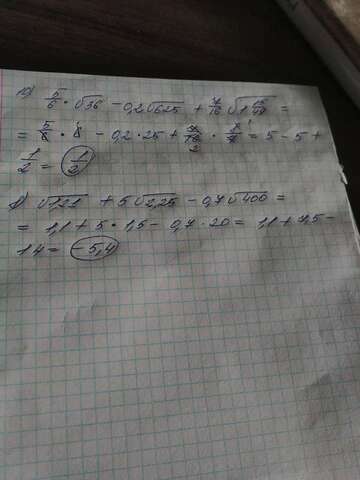 10) 5/6 · √36 - 0,2√625 + 7/16 √1 15/49 =
= 5/6 · 6 - 0,2 · 25 + 7/16 · 8/7 = 5 - 5 +
2
1/2 = 1/2
√1,21 + 5√2,25 - 0,7√400 =
= 1,1 + 5 · 1,5 - 0,7 · 20 = 1,1 + 7,5 -
14 = -5,4